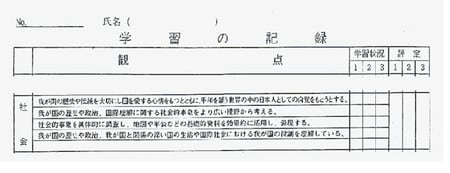 No. 氏名( )
学習の記録
観点 学習状況 評定
1 2 3 1 2 3
社会
我が国の歴史や伝統を大切にし国を愛する心情をもつとともに、平和を願う世界の中の日本人としての自覚をもとうとする。
我が国の歴史や政治、国際理解に関する社会的事象をより広い視野から考える。
社会的事象を具体的に調査し、地図や年表などの基礎的資料を効果的に活用し、表現する。
我が国の歴史や政治、我が国と関係の深い国の生活や国際社会における我が国の役割を理解している。